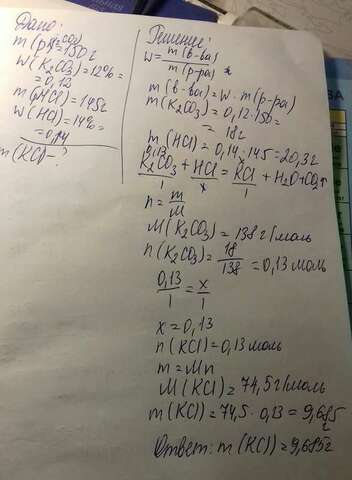 Дано:
m(р-ра K₂CO₃)=150г
W(K₂CO₃)=12%=
=0,12
m(HCl)=145г
W(HCl)=14%=
=0,14
m(KCl)-?
Решение:
W=m(в-ва)/m(р-ра)
m(в-ва)=W·m(р-ра)
m(K₂CO₃)=0,12·150=
=18г
m(HCl)=0,14·145=20,3г
0,13 x
K₂CO₃+HCl=KCl+H₂O+CO₂↑
1 1
n=m/M
M(K₂CO₃)=138г/моль
n(K₂CO₃)=18/138=0,13моль
0,13/1=x/1
x=0,13
n(KCl)=0,13моль
m=Mn
M(KCl)=74,5г/моль
m(KCl)=74,5·0,13=9,685
г
Ответ: m(KCl)=9,685г